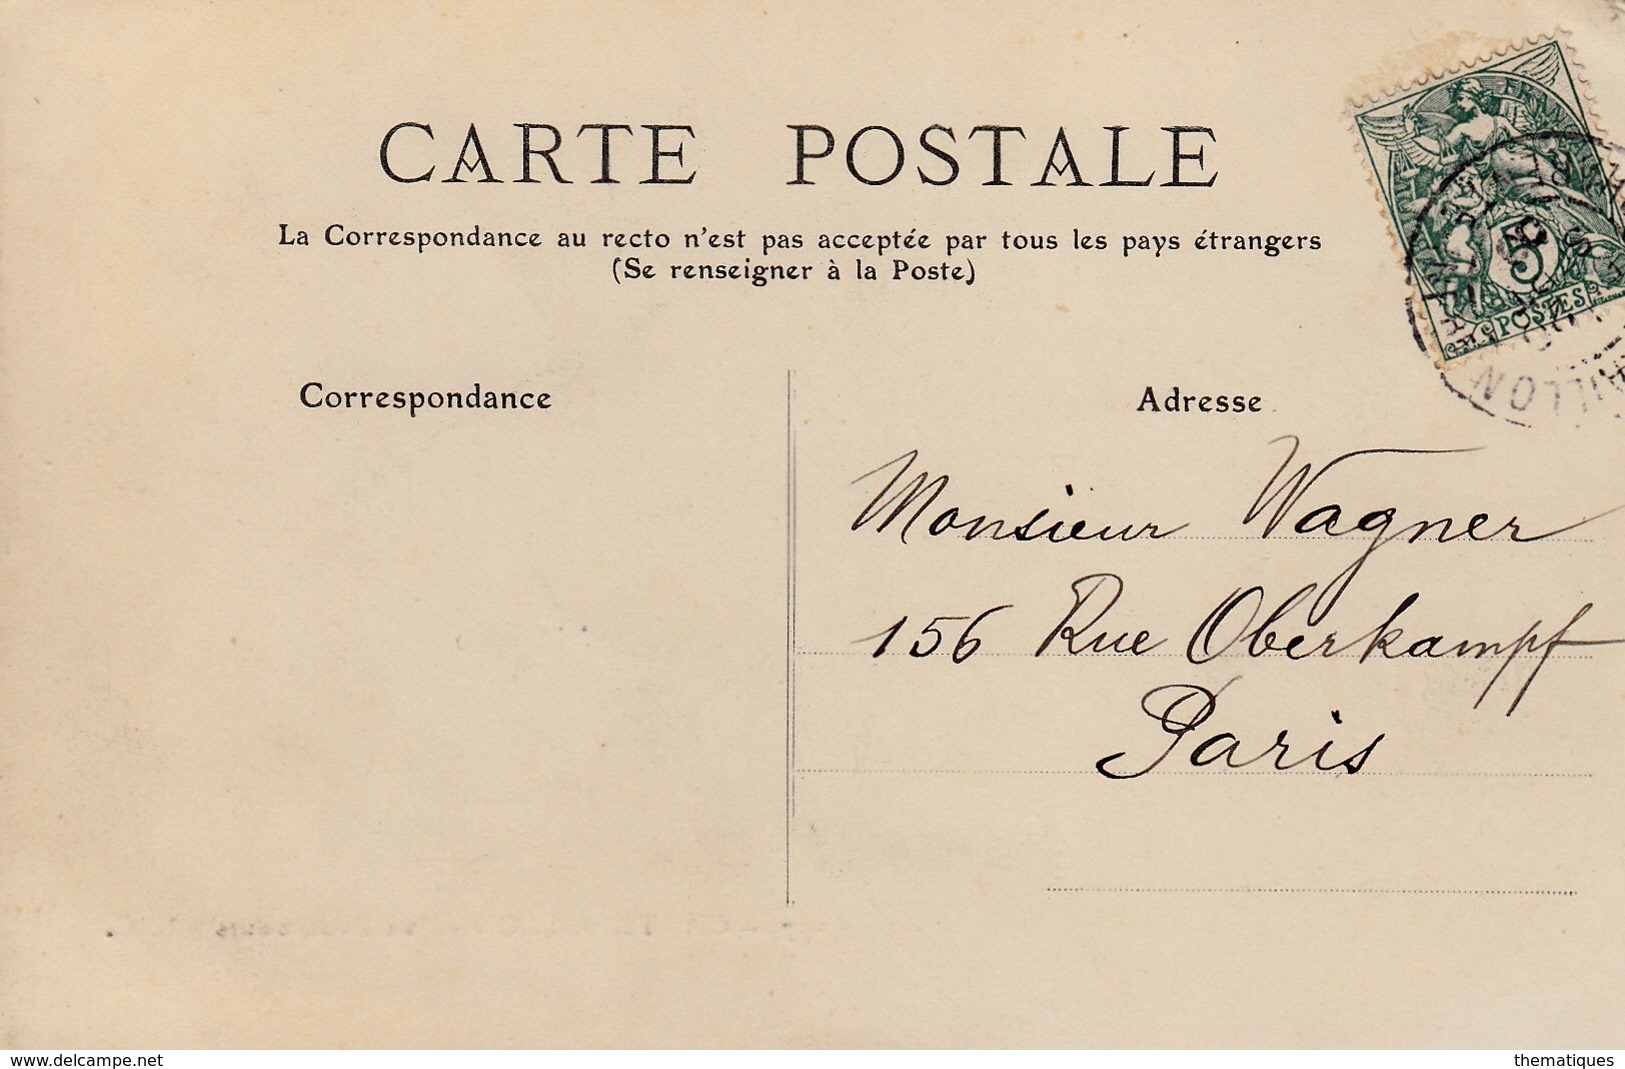 CARTE POSTALE
La Correspondance au recto n'est pas acceptée par tous les pays étrangers
(Se renseigner à la Poste)
FRANÇAISE
5
POSTES
Correspondance
Adresse
Monsieur Wagner
156 Rue Oberkampf
Paris
www.delcampe.net
thematiques